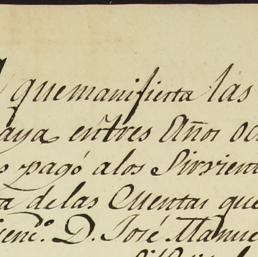 quemanifiesta las
aya entres Años oc
s pagó alos Sirvient
ta delas Cuentas que
cenc.º D. José Manue